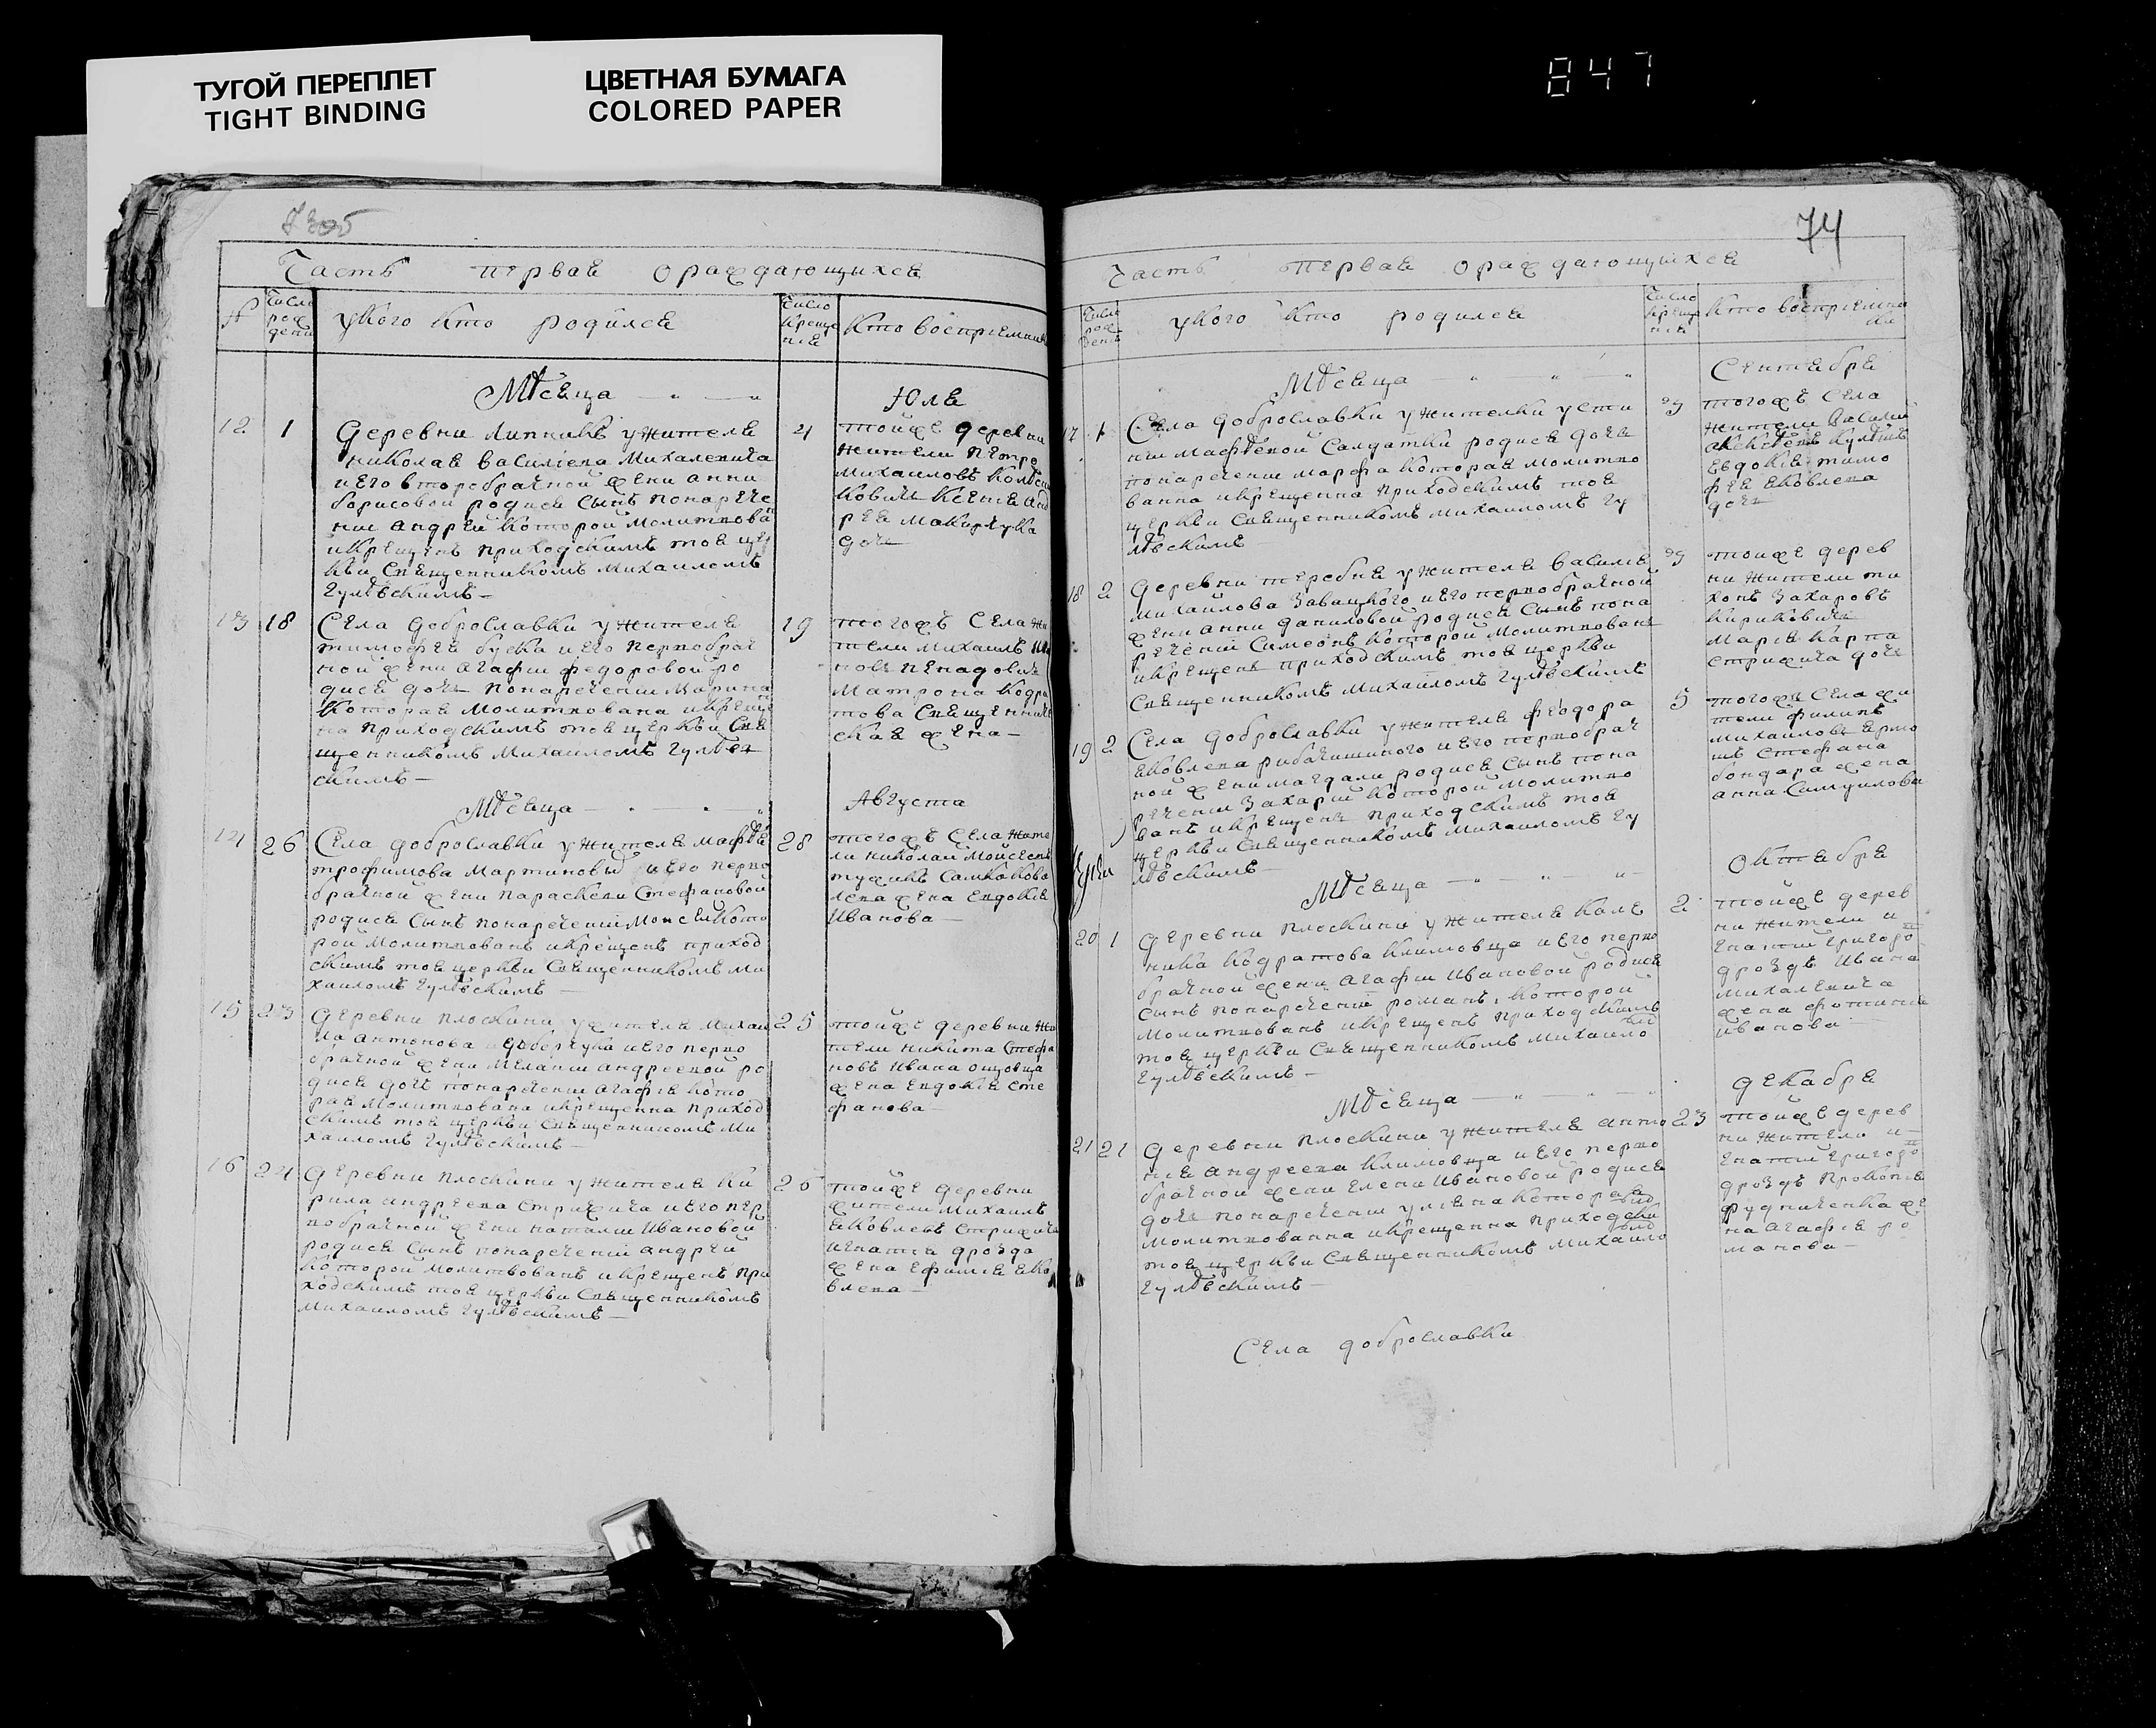 ТУГОЙ ПЕРЕПЛЕТ
TIGHT BINDING
ЦВЕТНАЯ БУМАГА
COLORED PAPER
847
Часть первая ораждающихся
№
Число рождени
у кого кто родился
Число крещения
Кто восприемни
Мѣсяца
Юля
12 1
Деревни Липникъ у жителя
Николая Василіева Михалевича
и его второбрачной жени Анни
Борисовой родися сынъ понарече
нии Андрей которой молитвова
и крещенъ приходскимъ тоя цер
кви священникомъ Михаиломъ
Гулѣвскимъ
4
тойже деревни
жители Петро
Михаиловъ
Ксения Анд
рея Макарчука
дочь
13 18
Села Доброславки у жителя
Тимофея Буска и его первобрач
ной жени Агафии Федоровой ро
дися дочь понаречении Марина
которая молитвована и креще
на приходскимъ тоя церкви свя
щенникомъ Михаиломъ Гулѣв
скимъ
19
тогожъ села жи
тели Михаилъ
Матрона Кодра
това священниче
ская жена
Мѣсяца
Августа
14 26
Села Доброславки у жителя Мафѣя
Трофимова Мартиновы и его перво
брачной жени Параскеви Стефановой
родися сынъ понаречении Моисей кото
рой молитвованъ и крещенъ приход
скимъ тоя церкви священникомъ Ми
хаиломъ Гулѣвскимъ
28
тогожъ села жите
ли Николай Мойсеевъ
жена Евдокия
Иванова
15 23
Деревни Плоскини у жителя Михаи
ла Антонова и его перво
брачной жени Меланіи Андреевой ро
дися дочь понаречении Агафия кото
рая молитвована и крещенна приход
скимъ тоя церкви священникомъ Ми
хаиломъ Гулѣвскимъ
25
тойже деревни жи
тели Никита Стефа
новъ Ивана
жена Евдокия Сте
фанова
16 24
Деревни Плоскини у жителя Ки
рила Андреева Стрижича и его пер
вобрачной жени Наталіи Ивановой
родися сынъ понаречении Андрей
которой молитвованъ и крещенъ при
ходскимъ тоя церкви священникомъ
Михаиломъ Гулѣвскимъ
26
тойже деревни
жители Михаилъ
Яковлевъ Стрижичъ
Игнатия Дрозда
жена Ефимия Яко
влева
74
Часть первая ораждающихся
Число рождени
у кого кто родился
Число крещения
Кто восприемники
Мѣсяца
Сентебря
17 1
Села Доброславки у жителки Усти
нии Мафѣевой салдатки родися дочь
понаречении Марфа которая молитво
ванна и крещенна приходскимъ тоя
церкви священникомъ Михаиломъ Гу
лѣвскимъ
тогожъ села
жители Василий
Евдокия Тимо
фея Яковлева
дочь
18 2
Деревни Теребня у жителя Василия
Михаилова Завацкого и его первобрачной
жени Анни Даниловой родися сынъ пона
речении Симеонъ которой молитвованъ
и крещенъ приходскимъ тоя церкви
священникомъ Михаиломъ Гулѣвскимъ
тойже дерев
ни жители Ти
хонъ Захаровъ
Кирикович
Мария Карпа
Стрижича дочь
19 2
Села Доброславки у жителя Феодора
Яковлева и его первобрач
ной жени Магдали родися сынъ пона
речении Захарий которой молитво
ванъ и крещенъ приходскимъ тоя
церкви священникомъ Михаиломъ Гу
лѣвскимъ
5
тогожъ села жи
тели Филипъ
Михаиловъ
Стефана
Бондара жена
Анна Самуилова
Мѣсяца
Октебря
20 1
Деревни Плоскини у жителя Кале
ника Кодратова Климовца и его перво
брачной жени Агафии Ивановой родися
сынъ понаречении Романъ которой
молитвованъ и крещенъ приходскимъ
тоя церкви священникомъ Михаило
Гулѣвскимъ
2
тойже дерев
ни жители и
гнатий Григоро
Дроздъ Ивана
Михалевича
жена Фотиния
Иванова
Мѣсяца
Декабря
21 21
Деревни Плоскини у жителя Анто
ния Андреева Климовца и его перво
брачной жени Елени Ивановой родися
дочь понаречении Улияна которая
молитвованна и крещенна приходски
тоя церкви священникомъ Михаило
Гулѣвскимъ
23
тойже дерев
ни жители и
гнатий Григоро
Дроздъ Прокопия
же
на Агафия Ро
манова
Села Доброславки